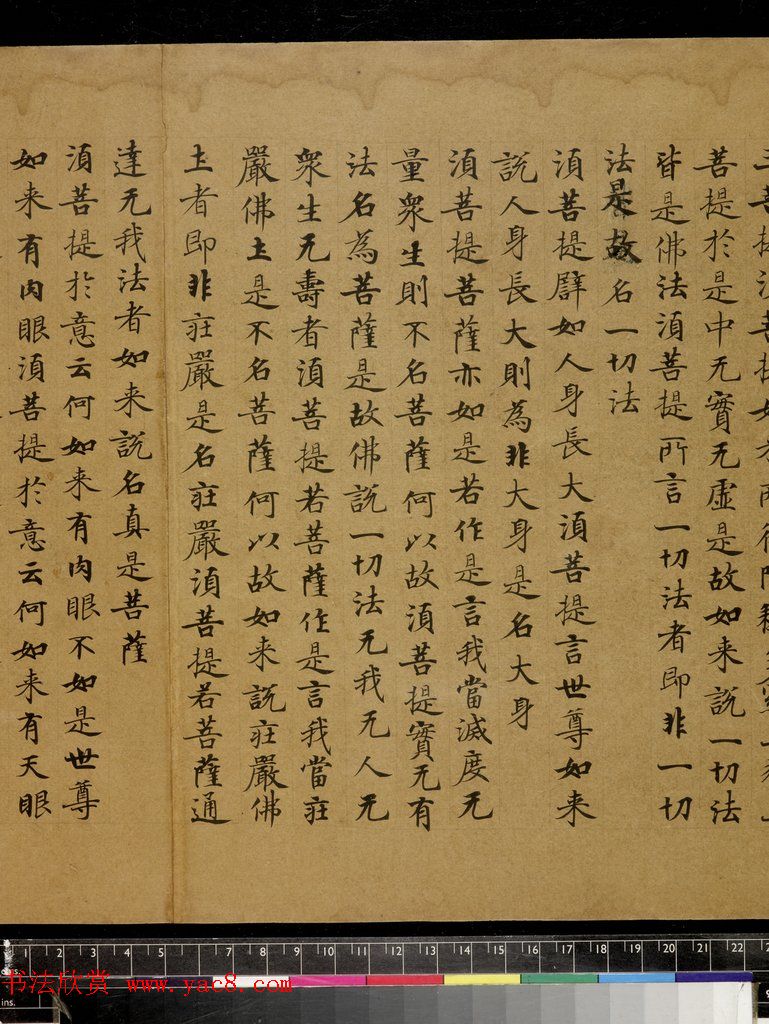 菩提湏菩提如来所得阿
菩提於是中无實无虛是故如来說一切法
皆是佛法湏菩提所言一切法者即非一切
法是故名一切法
湏菩提譬如人身長大湏菩提言世尊如来
說人身長大則為非大身是名大身
湏菩提菩薩亦如是若作是言我當滅度无
量衆生則不名菩薩何以故湏菩提實无有
法名為菩薩是故佛說一切法无我无人无
衆生无壽者湏菩提若菩薩作是言我當莊
嚴佛土是不名菩薩何以故如来說莊嚴佛
土者即非莊嚴是名莊嚴湏菩提若菩薩通
達无我法者如来說名真是菩薩
湏菩提於意云何如来有肉眼不如是世尊
如来有肉眼湏菩提於意云何如来有天眼
1 2 3 4 5 7 8 9 10 11 12 13 14 15 16 17 18 19 20 21 22
书法欣赏 www.yac8.com
ins.